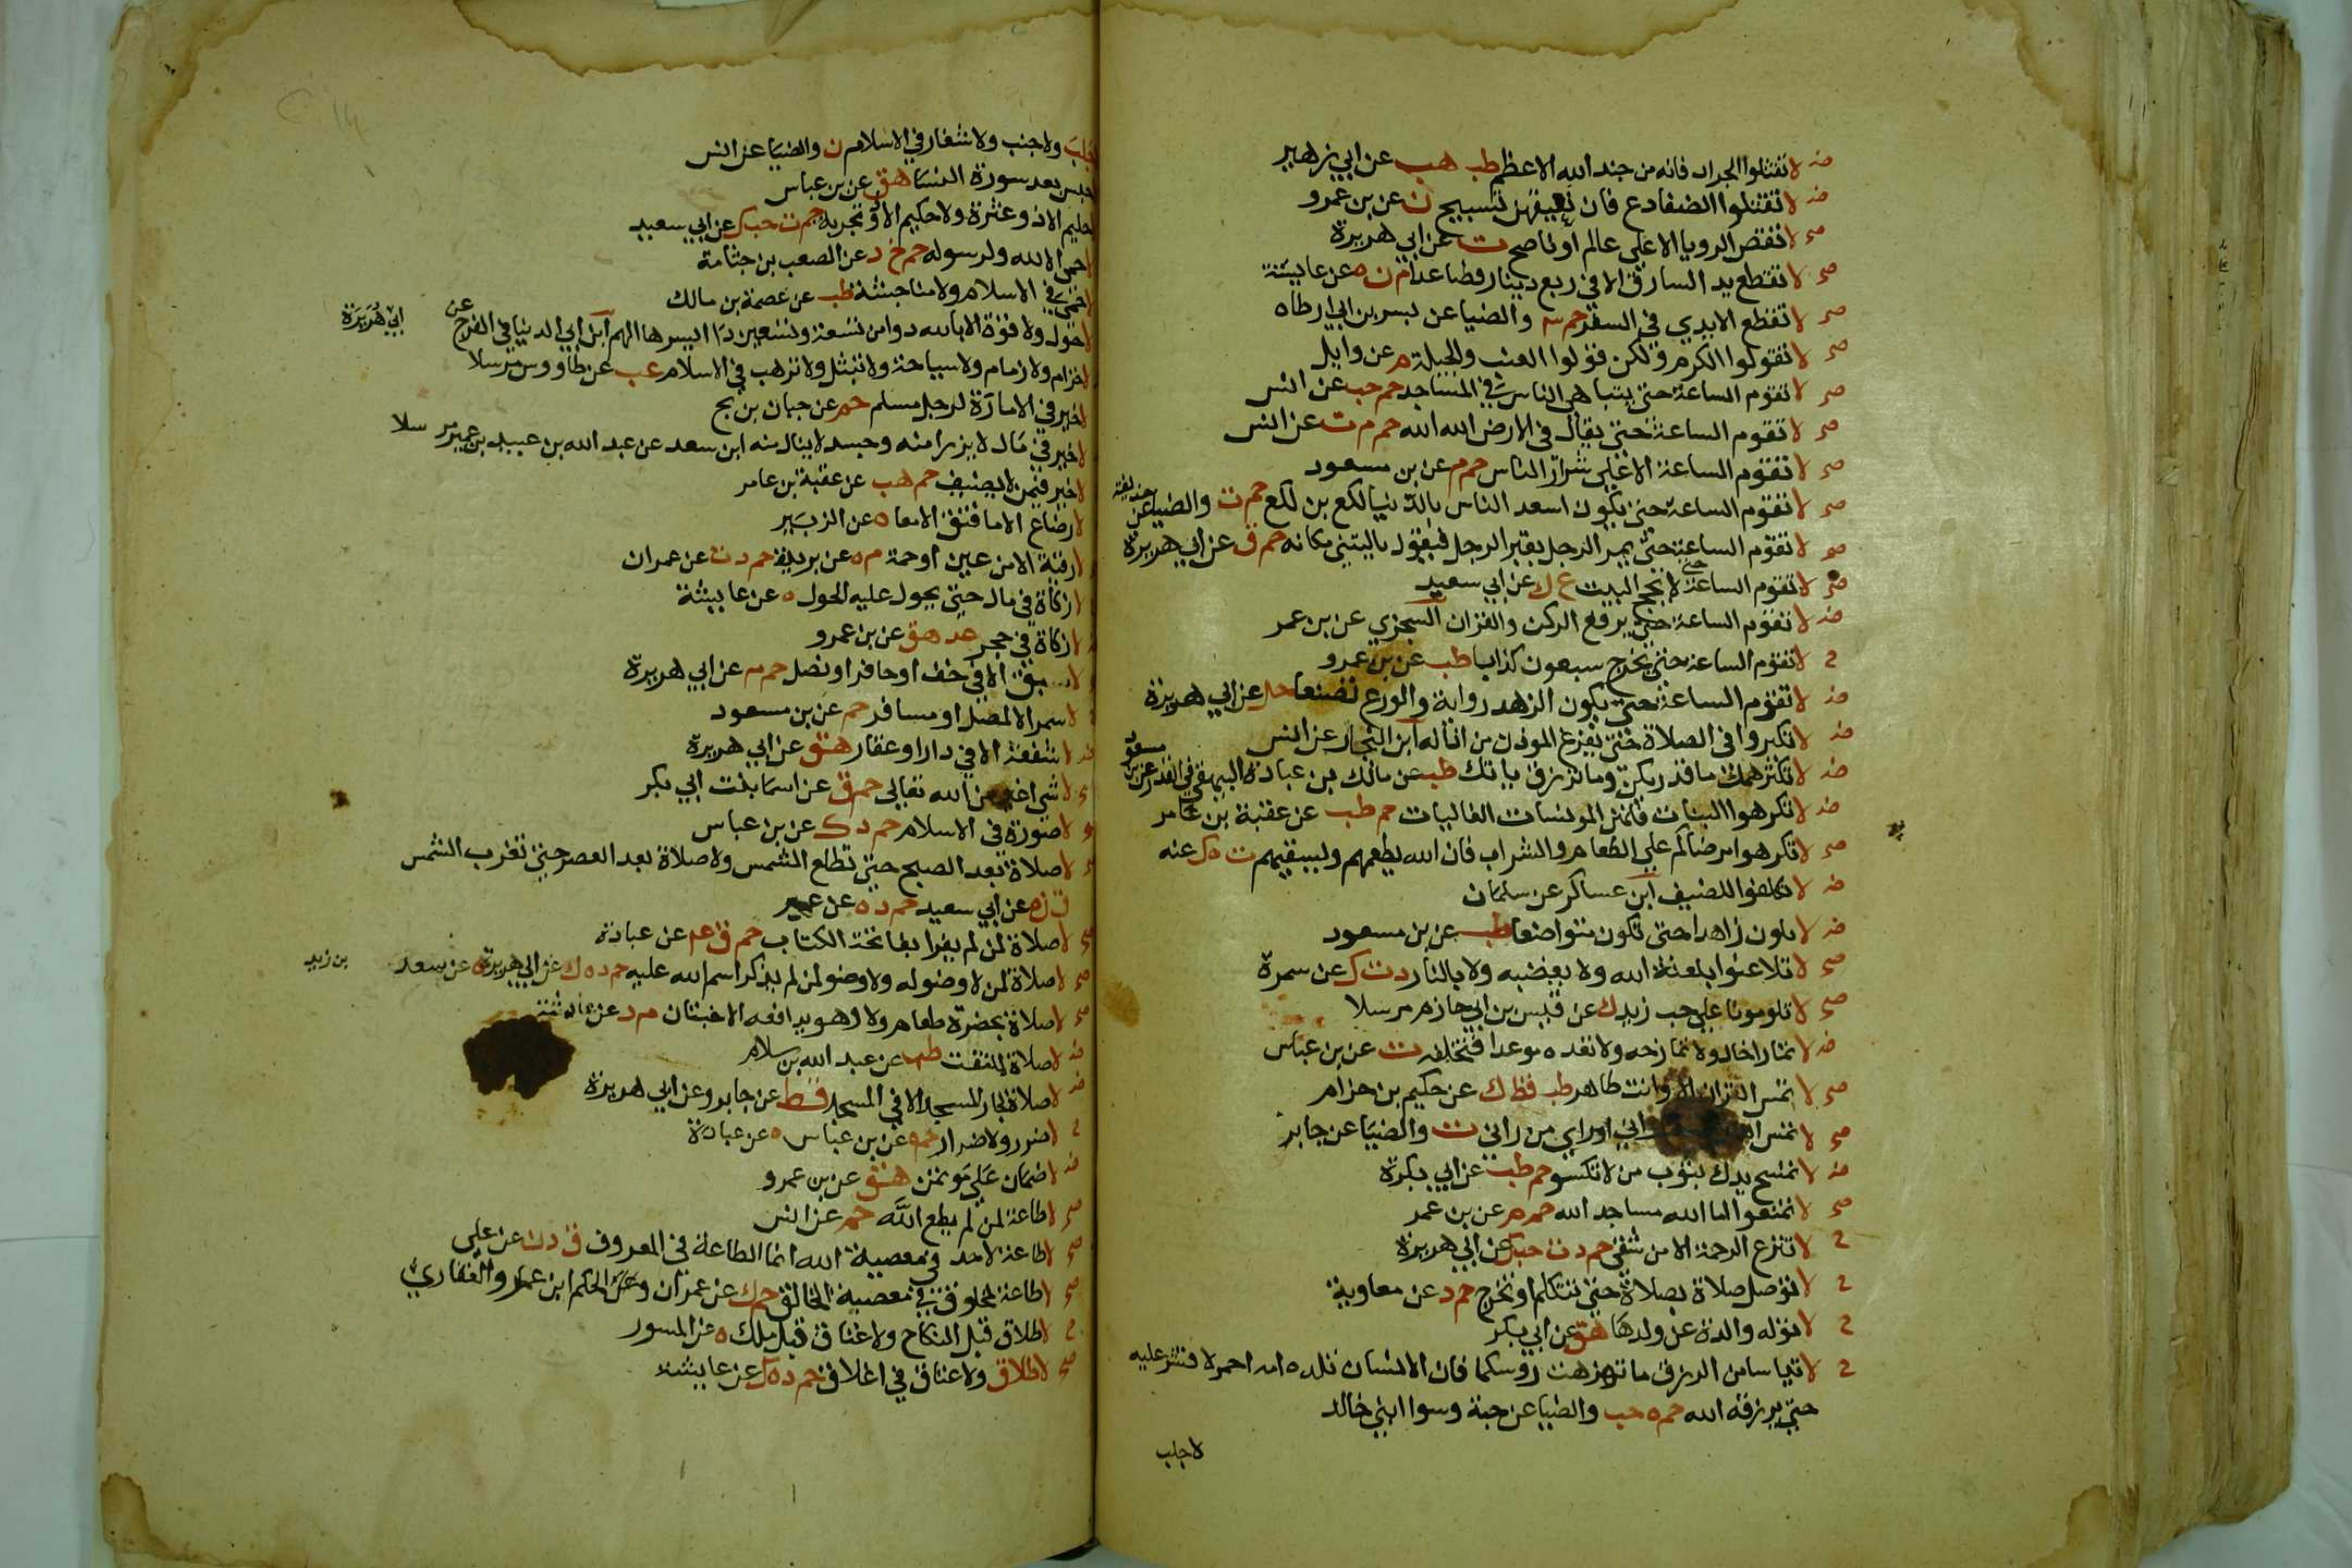 ضـ لا تقتلوا الجراد فانه من جند الله الاعظم طب هب عن ابي زهير
ضـ لا تقتلوا الضفادع فان نعيقهن تسبيح ن عن بن عمرو
صح لا تقص الرويا الا على عالم او ناصح ت عن ابي هريرة
صح لا تقطع يد السارق الا في ربع دينار فصاعدا م ن ه عن عايشة
صح لا تقطع الايدي في السفر حم ٣ والضيا عن بسر بن ابي ارطاه
صح لا تقولوا الكرم ولكن قولوا العنب والحبلة م عن وايل
صح لا تقوم الساعة حتى يتباهى الناس في المساجد حم حب عن انس
صح لا تقوم الساعة حتى يقال في الارض الله الله حم م ت عن انس
صح لا تقوم الساعة الا على شرار الناس حم م عن بن مسعود
صح لا تقوم الساعة حتى يكون اسعد الناس بالدنيا لكع بن لكع حم ت والضيا عن حذيفة
صح لا تقوم الساعة حتى يمر الرجل بقبر الرجل فيقول ياليتني مكانه حم ق عن ابي هريرة
صح لا تقوم الساعة حتى لا يحج البيت ع ك عن ابي سعيد
ضـ لا تقوم الساعة حتى يرفع الركن والقران السجزي عن بن عمر
ح لا تقوم الساعة حتى يخرج سبعون كذابا طب عن بن عمرو
ضـ لا تقوم الساعة حتى يكون الزهد رواية والورع تصنعا حل عن ابي هريرة
ضـ لا تكبروا في الصلاة حتى يفرغ الموذن من اذانه ابن النجار عن انس
ضـ لا تكثر همك ما قدر يكن وما ترزق ياتك طب عن مالك بن عبادة البيهقي في القدر عن بن مسعود
ضـ لا تكرهوا البنات فانهن المونسات الغاليات حم طب عن عقبة بن عامر
صح لا تكرهوا مرضاكم على الطعام والشراب فان الله يطعمهم ويسقيهم ت ه ك عنه
ضـ لا تكلفوا للضيف ابن عساكر عن سلمان
ضـ لا تكون زاهدا حتى تكون متواضعا طب عن بن مسعود
صح لا تلاعنوا بلعنة الله ولا بغضبه ولا بالنار د ت ك عن سمرة
صح لا تلومونا على حب زيد ك عن قيس بن ابي حازم مرسلا
ضـ لا تمار اخاك ولا تمازحه ولا تعده موعدا فتخلفه ت عن بن عباس
صح لا تمس القران الا وانت طاهر طب قط ك عن حكيم بن حزام
صح لا تمس راني اوراي من راني ت والضيا عن جابر
ضـ لا تمسح يدك بثوب من لا تكسو حم طب عن ابي بكرة
صح لا تمنعوا اما الله مساجد الله حم م عن بن عمر
ح لا تنزع الرحمة الا من شقي حم د ت حب ك عن ابي هريرة
ح لا توصل صلاة بصلاة حتى تتكلم او تخرج حم د عن معاوية
ح لا توله والدة عن ولدها هق عن ابي بكر
ح لا تياسا من الرزق ما تهزهت روسكما فان الانسان تلده امه احمر لا قشر عليه
حتى يرزقه الله حم ه حب والضيا عن حبة وسوا ابني خالد
لا جلب
جلب ولا جنب ولا شغار في الاسلام ن والضيا عن انس
حبس بعد سورة النسا هق عن بن عباس
حليم الا ذو عثرة ولا حكيم الا ذو تجربة حم ت حب ك عن ابي سعيد
لا حمى الا لله ولرسوله حم خ د عن الصعب بن جثامة
في الاسلام ولا مناجشة طب عن عصمة بن مالك
لا حول ولا قوة الا بالله دوا من تسعة وتسعين دا ايسرها الهم ابن ابي الدنيا في الفرج عن ابي هريرة
لا خزام ولا زمام ولا سياحة ولا تبتل ولا ترهب في الاسلام عب عن طاووس مرسلا
لا خير في الامارة لرجل مسلم حم عن حبان بن بح
لا خير في مال لا يرزا منه وجسد لا ينال منه ابن سعد عن عبد الله بن عبيد بن عمير مرسلا
لا خير فيمن لا يضيف حم هب عن عقبة بن عامر
لا رضاع الا ما فتق الامعا ه عن الزبير
لا رقية الا من عين او حمة م ه عن بريدة حم د ت عن عمران
لا زكاة في مال حتى يحول عليه الحول ه عن عايشة
لا زكاة في حجر عد هق عن بن عمرو
لا سبق الا في خف او حافر او نصل حم ٤ عن ابي هريرة
لا سمر الا لمصل او مسافر حم عن بن مسعود
ضـ لا شفعة الا في دار او عقار هق عن ابي هريرة
صح لا شي اغير من الله تعالى حم ق عن اسما بنت ابي بكر
صح لا صرورة في الاسلام حم د ك عن بن عباس
صح لا صلاة بعد الصبح حتى تطلع الشمس ولا صلاة بعد العصر حتى تغرب الشمس
ق ن ه عن ابي سعيد حم د ه عن عمر
صح لا صلاة لمن لم يقرا بفاتحة الكتاب حم ق عم عن عبادة
صح لا صلاة لمن لا وضو له ولا وضو لمن لم يذكر اسم الله عليه حم د ه ك عن ابي هريرة ه عن سعيد بن زيد
صح لا صلاة بحضرة طعام ولا وهو يدافعه الاخبثان م د عن عايشة
ضـ لا صلاة لملتفت طب عن عبد الله بن سلام
ضـ لا صلاة لجار المسجد الا في المسجد قط عن جابر وعن ابي هريرة
ح لا ضرر ولا ضرار حم ه عن بن عباس ه عن عبادة
ضـ لا ضمان على موتمن هق عن بن عمرو
صح لا طاعة لمن لم يطع الله حم عن انس
صح لا طاعة لاحد في معصية الله انما الطاعة في المعروف ق د ن عن علي
صح لا طاعة لمخلوق في معصية الخالق حم ك عن عمران وعن الحكم ابن عمرو الغفاري
ح لا طلاق قبل النكاح ولا عتاق قبل ملك ه عن المسور
صح لا طلاق ولا عتاق في اغلاق حم د ه ك عن عايشة